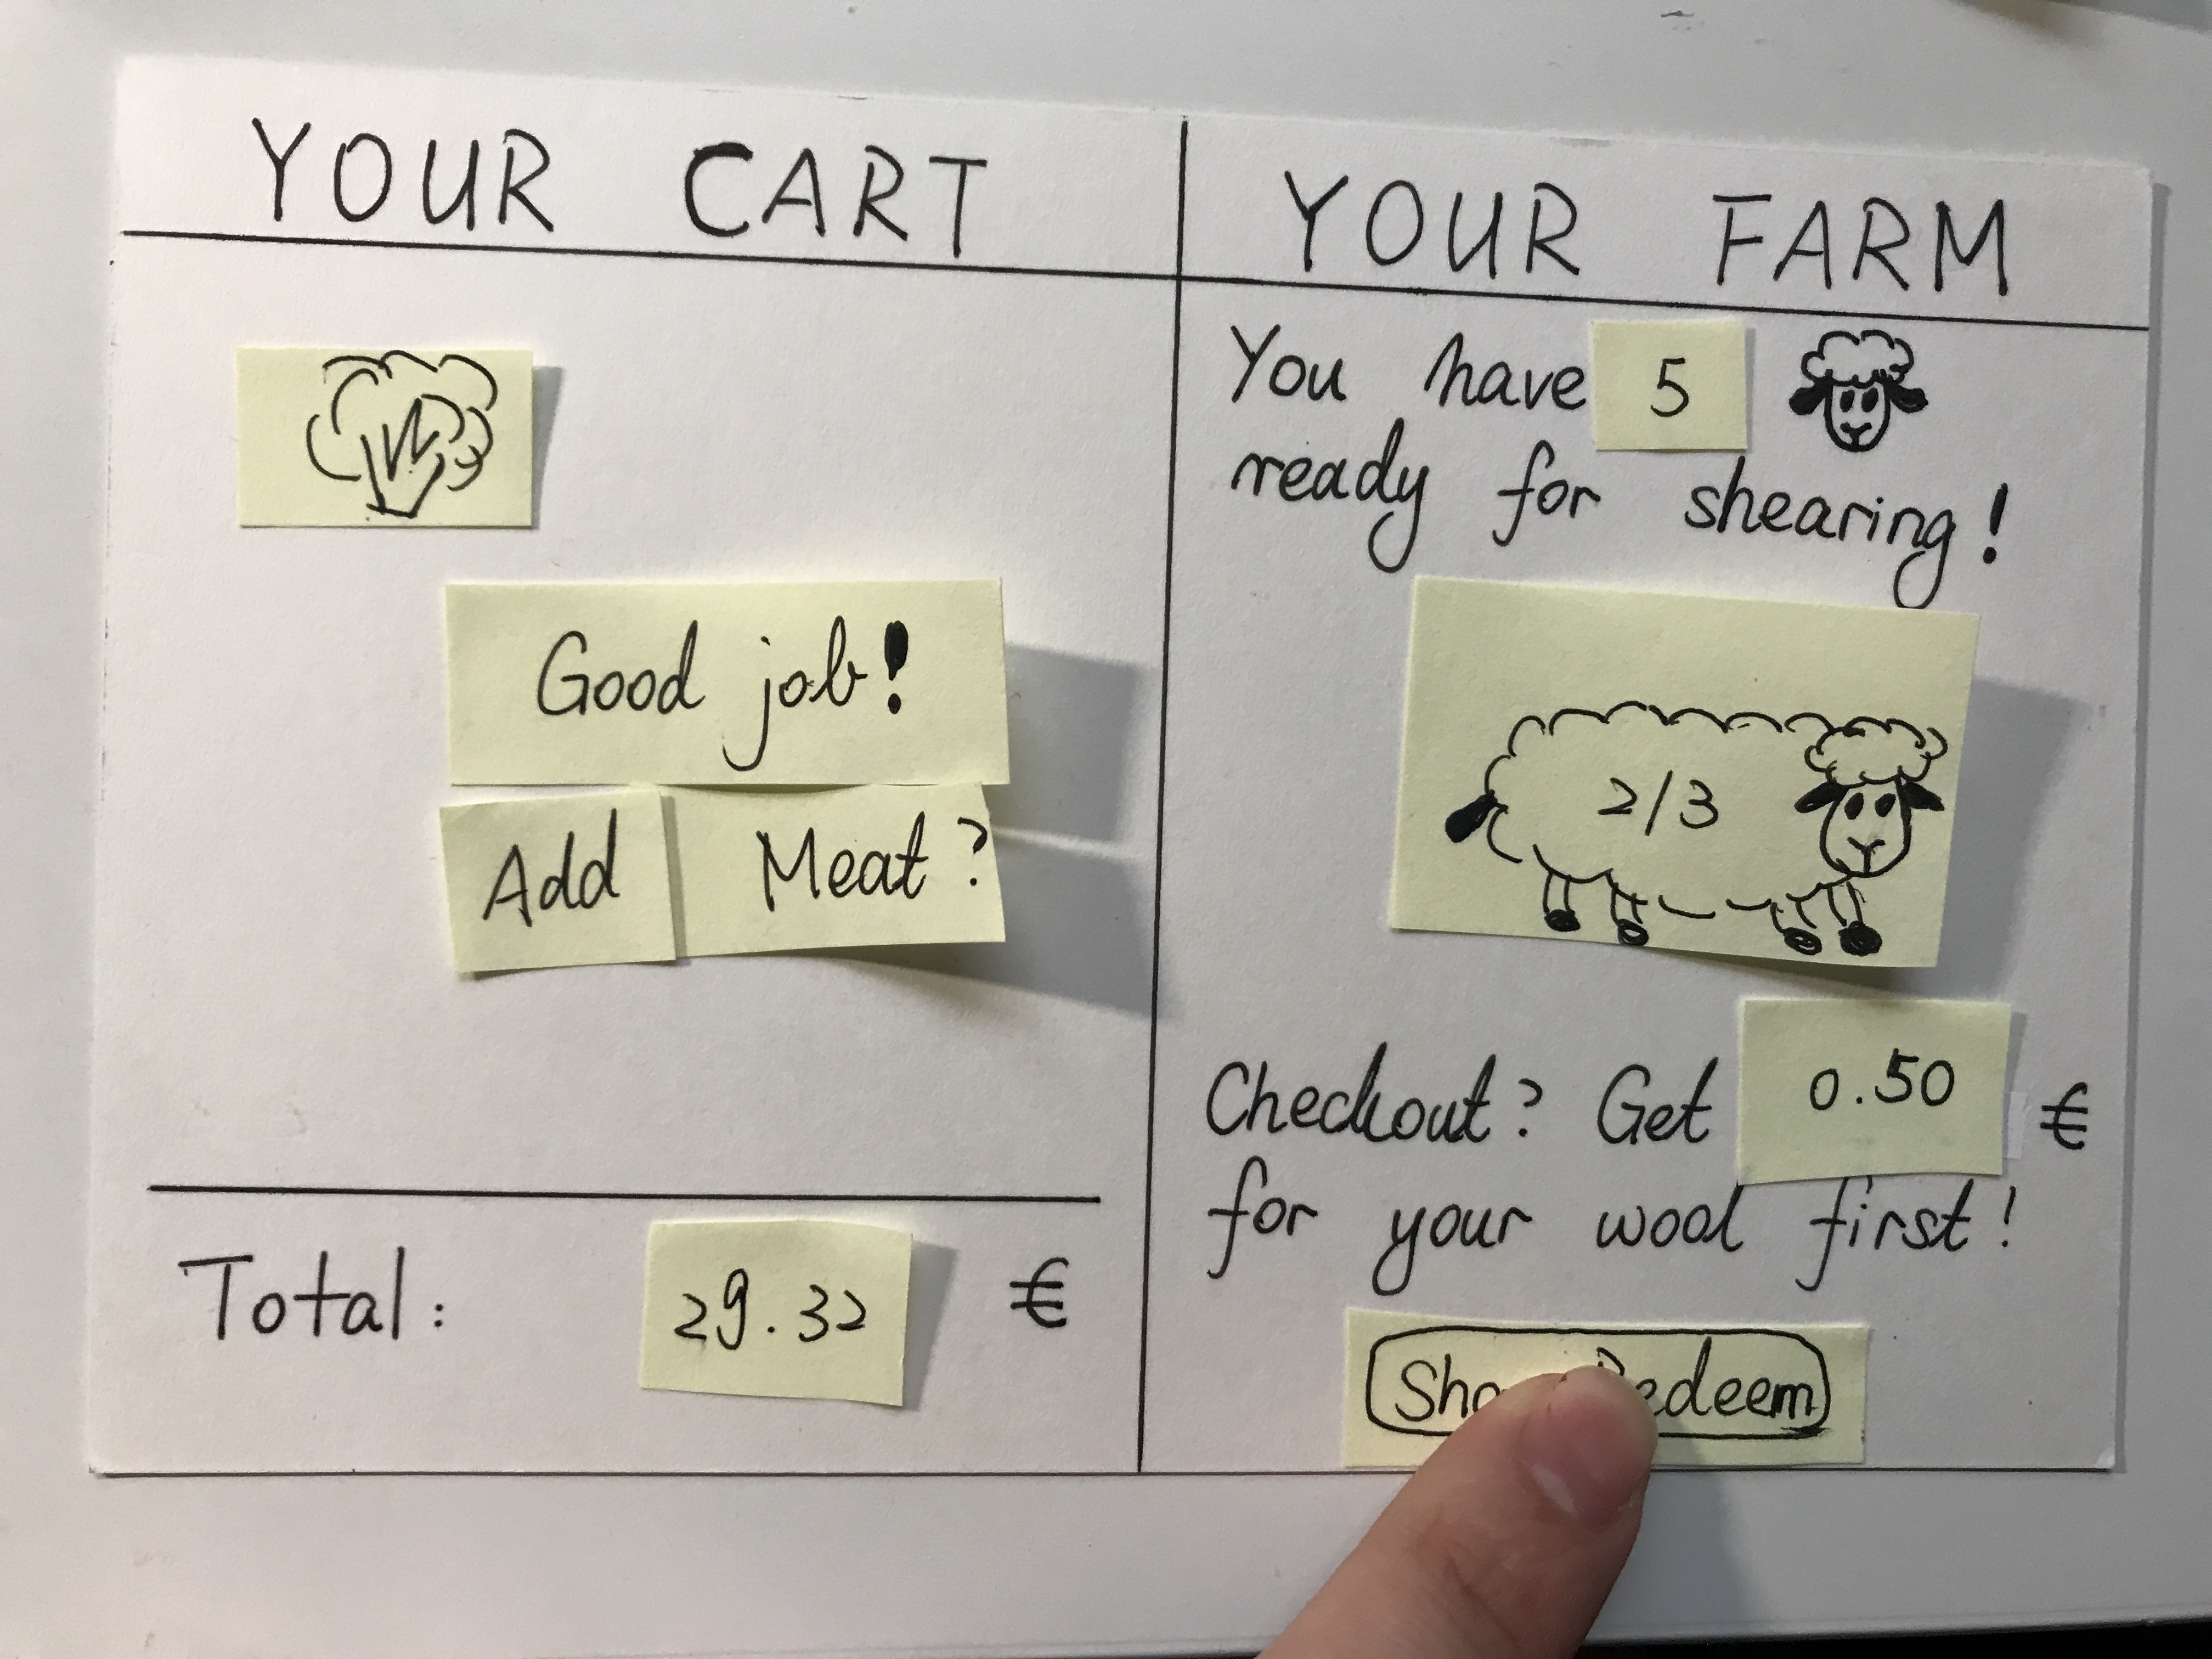 YOUR CART
Good job!
Add Meat?
Total: 29.32 €
YOUR FARM
You have 5
ready for shearing!
2/3
Checkout? Get 0.50 €
for your wool first!
Redeem